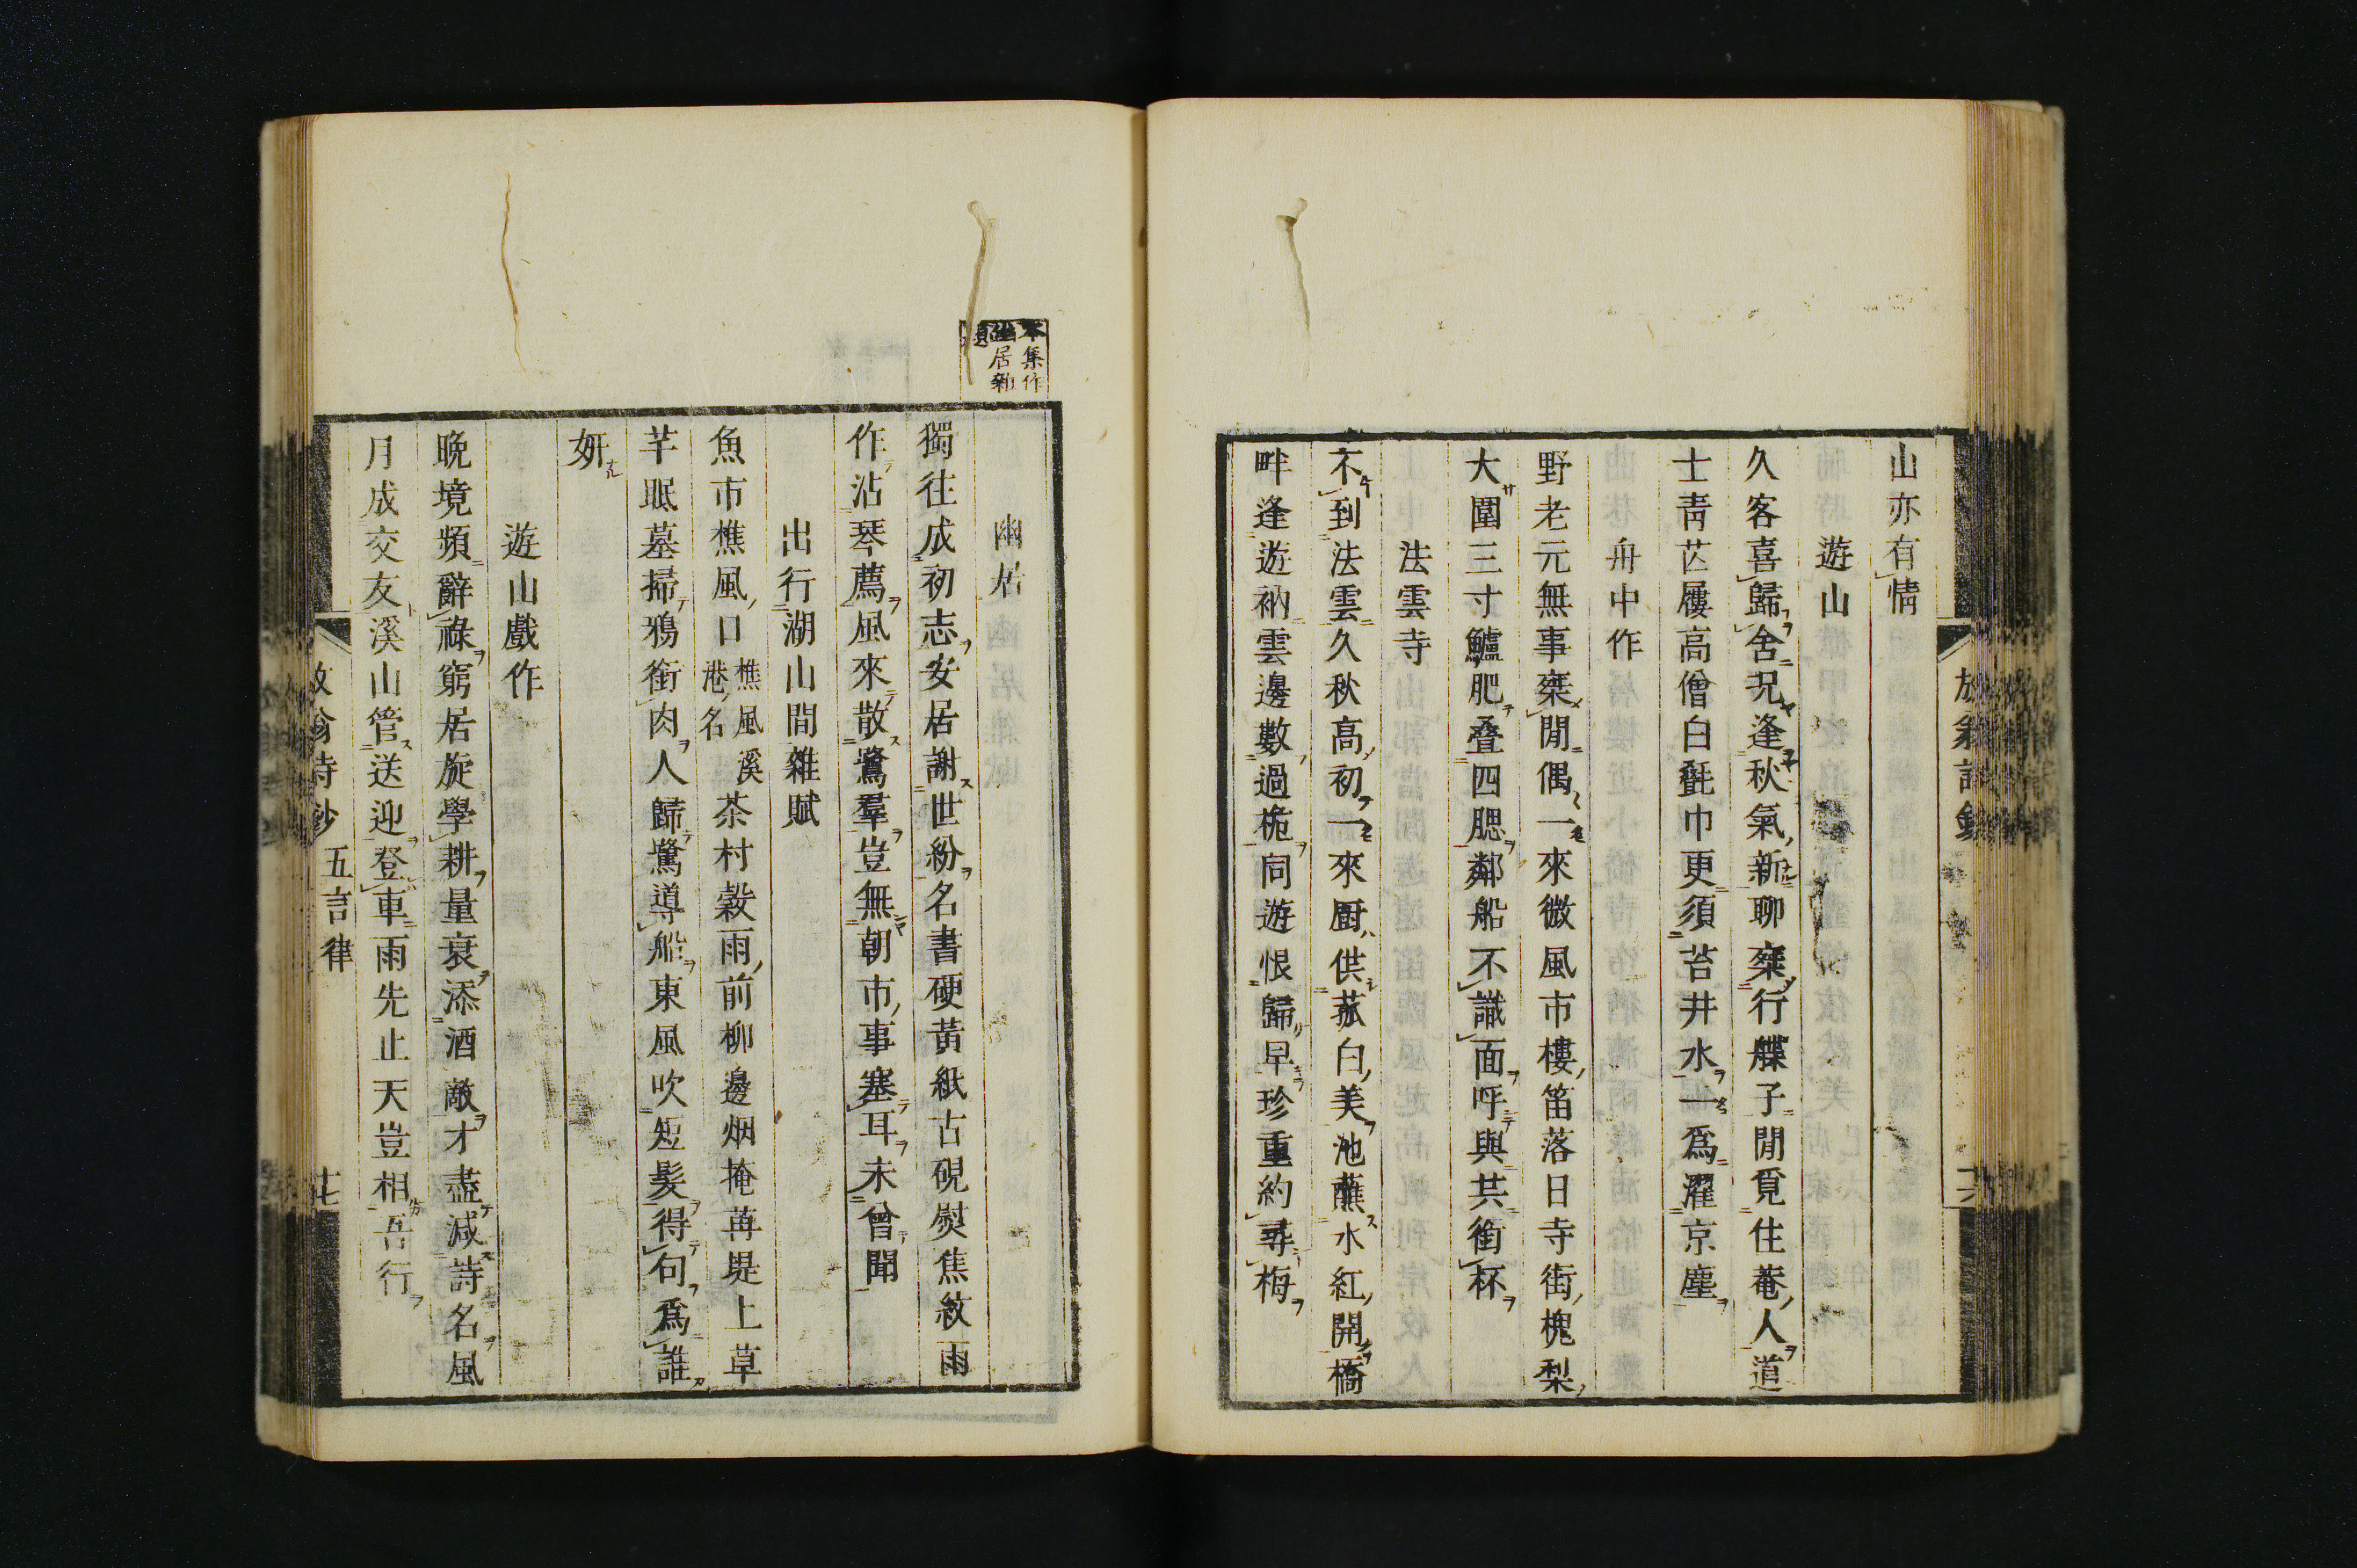 山亦有情
遊山
久客喜歸舍況逢秋氣新聊乘行艓子閒覓住菴人道
士靑芒屨高僧白㲲巾更須苔井水一爲濯京塵
舟中作
野老元無事乘閒偶一來微風市樓笛落日寺街槐梨
大圍三寸鱸肥疊四腮鄰船不識面呼與共銜杯
法雲寺
不到法雲久秋高初一來厨供菰白美池蘸水紅開橋
畔逢遊衲雲邊數過桅同遊恨歸早珍重約尋梅
本集作
幽居新
題
幽居
獨往成初志安居謝世紛名書硬黃紙古硯熨焦紋雨
作沾琴薦風來散鷺羣豈無朝市事塞耳未曾聞
出行湖山間雜賦
魚市樵風口
樵風溪
港名
茶村穀雨前柳邊烟掩苒堤上草
芊眠墓掃鴉銜肉人歸鷺導船東風吹短髮得句爲誰
妍
遊山戲作
晚境頻辭祿窮居旋學耕量衰添酒敵才盡減詩名風
月成交友溪山管送迎登車雨先止天豈相吾行
放翁詩鈔 五言律 十七